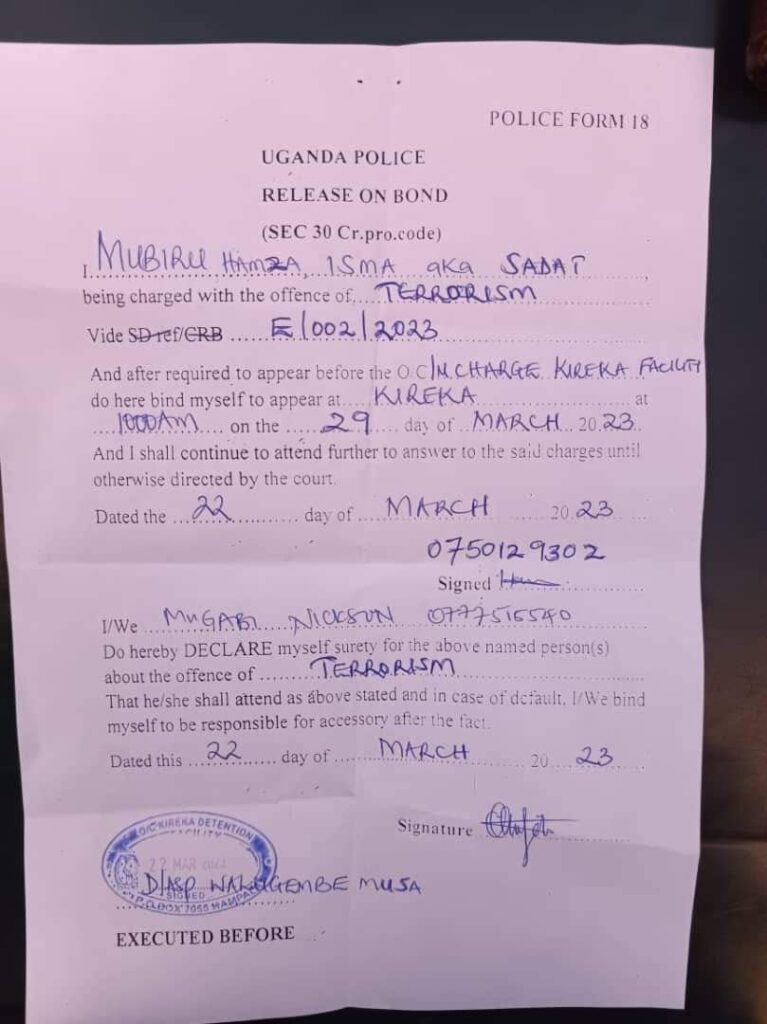 POLICE FORM 18
UGANDA POLICE
RELEASE ON BOND
(SEC 30 Cr.pro.code)
I MUBIRU HAMZA, ISMA aka SADAT
being charged with the offence of, TERRORISM
Vide SD ref/CRB E/002/2023
And after required to appear before the O.C/IN.CHARGE KIREKA FACILITY
do here bind myself to appear at KIREKA at
1000AM on the 29 day of MARCH 2023
And I shall continue to attend further to answer to the said charges until
otherwise directed by the court.
Dated the 22 day of MARCH 2023
0750129302
Signed
I/We MUGABI NICKSON 0777515540
Do hereby DECLARE myself surety for the above named person(s)
about the offence of TERRORISM
That he/she shall attend as above stated and in case of default, I/We bind
myself to be responsible for accessory after the fact.
Dated this 22 day of MARCH 20 23
Signature
O/C KIREKA DETENTION
FACILITY
22 MAR
D/ASP WALUGEMBE MUSA
SIGNED
P.O.BOX 7055 KAMPALA
EXECUTED BEFORE